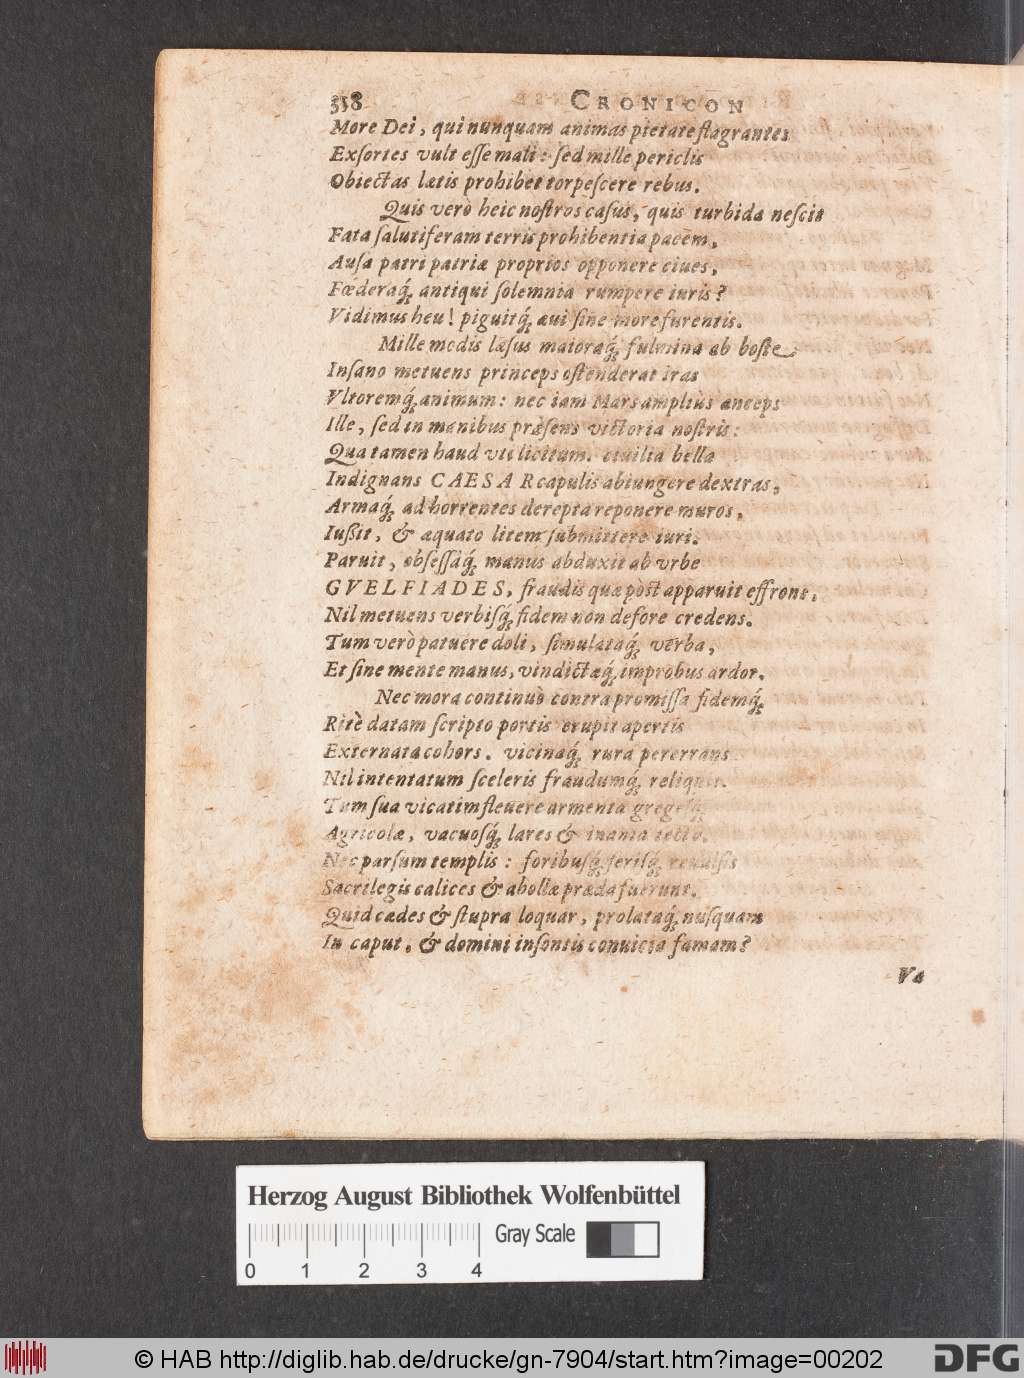 358 CRONICON
More Dei, qui nunquam animas pietate flagrantes
Exſortes vult eſſe mali: ſed mille periclis
Obiectas lætis prohibet torpeſcere rebus.
Quis verò heic noſtros caſus, quis turbida neſcit
Fata ſalutiferam terris prohibentia pacem,
Auſa patri patriæ proprios opponere ciues,
Fœderaq́; antiqui ſolemnia rumpere iuris?
Vidimus heu! piguitq́; aui ſine more furentis.
Mille modis læſus maioraq́; fulmina ab hoſte
Inſano metuens princeps oſtenderat iras
Vltoremq́; animum: nec iam Mars ampliùs anceps
Ille, ſed in manibus præſens victoria noſtris:
Qua tamen haud vti licitum. ciuilia bella
Indignans CAESAR capulis abiungere dextras,
Armaq́; ad horrentes derepta reponere muros,
Iußit, & æquato litem ſubmittere iuri.
Paruit, obſeſſáq́; manus abduxit ab vrbe
GVELFIADES, fraudis quæ pòst apparuit effrons,
Nil metuens verbiſq́; fidem non defore credens.
Tum verò patuêre doli, ſimulataq́; verba,
Et ſine mente manus, vindictæq́; improbus ardor.
Nec mora continuò contra promiſſa fidemq́;
Ritè datam ſcripto portis erupit apertis
Externata cohors. vicinaq́; rura pererrans
Nil intentatum ſceleris fraudumq́; reliquit.
Tum ſua vicatim fleuere armenta gregeſq́;
Agricolæ, vacuoſq́; lares & inania tecta.
Nec parſum templis: foribuſq́; ſeriſq́; reuulſis
Sacrilegis calices & abollæ præda fuerunt.
Quid cædes & ſtupra loquar, prolataq́; nuſquam
In caput, & domini inſontis conuicia famam?
Va
Herzog August Bibliothek Wolfenbüttel
Gray Scale
0 1 2 3 4
© HAB http://diglib.hab.de/drucke/gn-7904/start.htm?image=00202
DFG